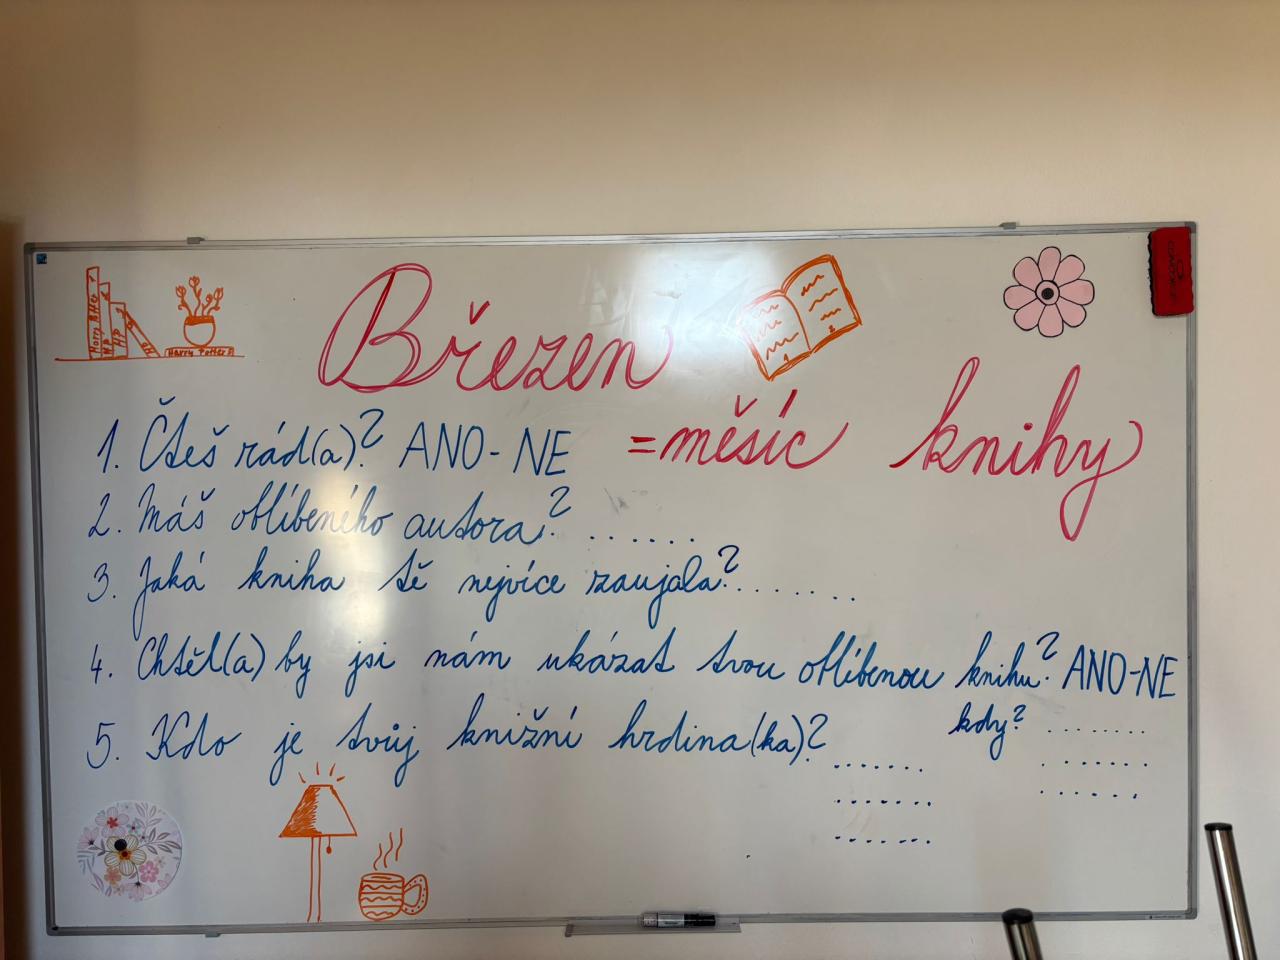 Harry Potter
HP
HP
HP
Harry Potter
Březen
1
2
= měsíc knihy
1. Čteš rád(a)? ANO-NE
2. Máš oblíbeného autora? ......
3. Jaká kniha tě nejvíce zaujala? ........
4. Chtěl(a) by jsi nám ukázat tvou oblíbenou knihu? ANO-NE
kdy? ........
5. Kdo je tvůj knižní hrdina(ka)? .......